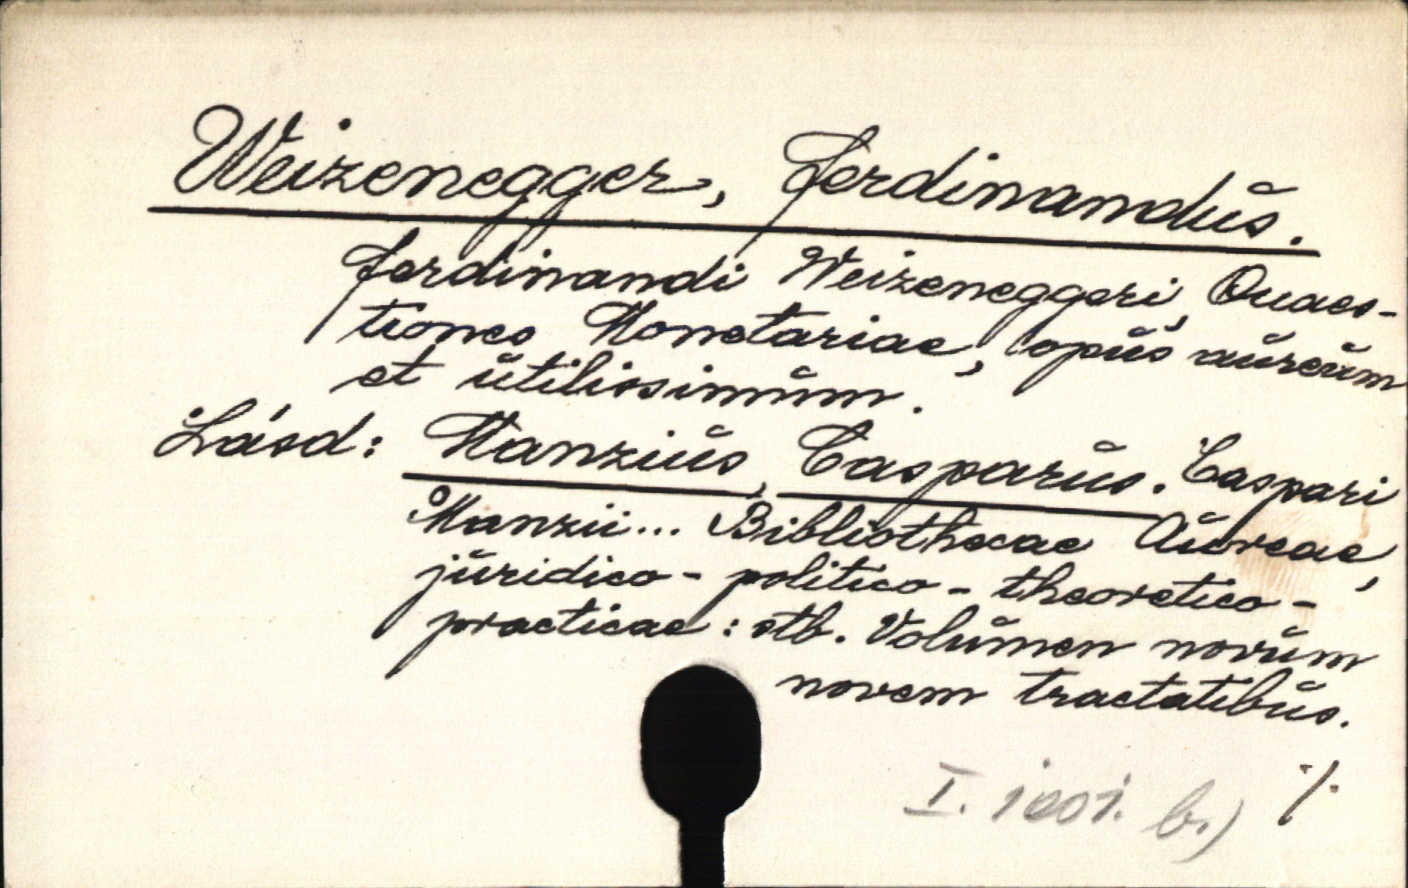 Weizenegger, Ferdinandus.
Ferdinandi Weizeneggeri, Quaes-
tiones Monetariae, opus aureum
et utilissimum.
Lásd: Manzius, Casparus. Caspari
Manzii... Bibliothecae Aureae,
juridico - politico - theoretico -
practicae : stb. Volumen novum
novem tractatibus.
I. 1001. b.) ·/.